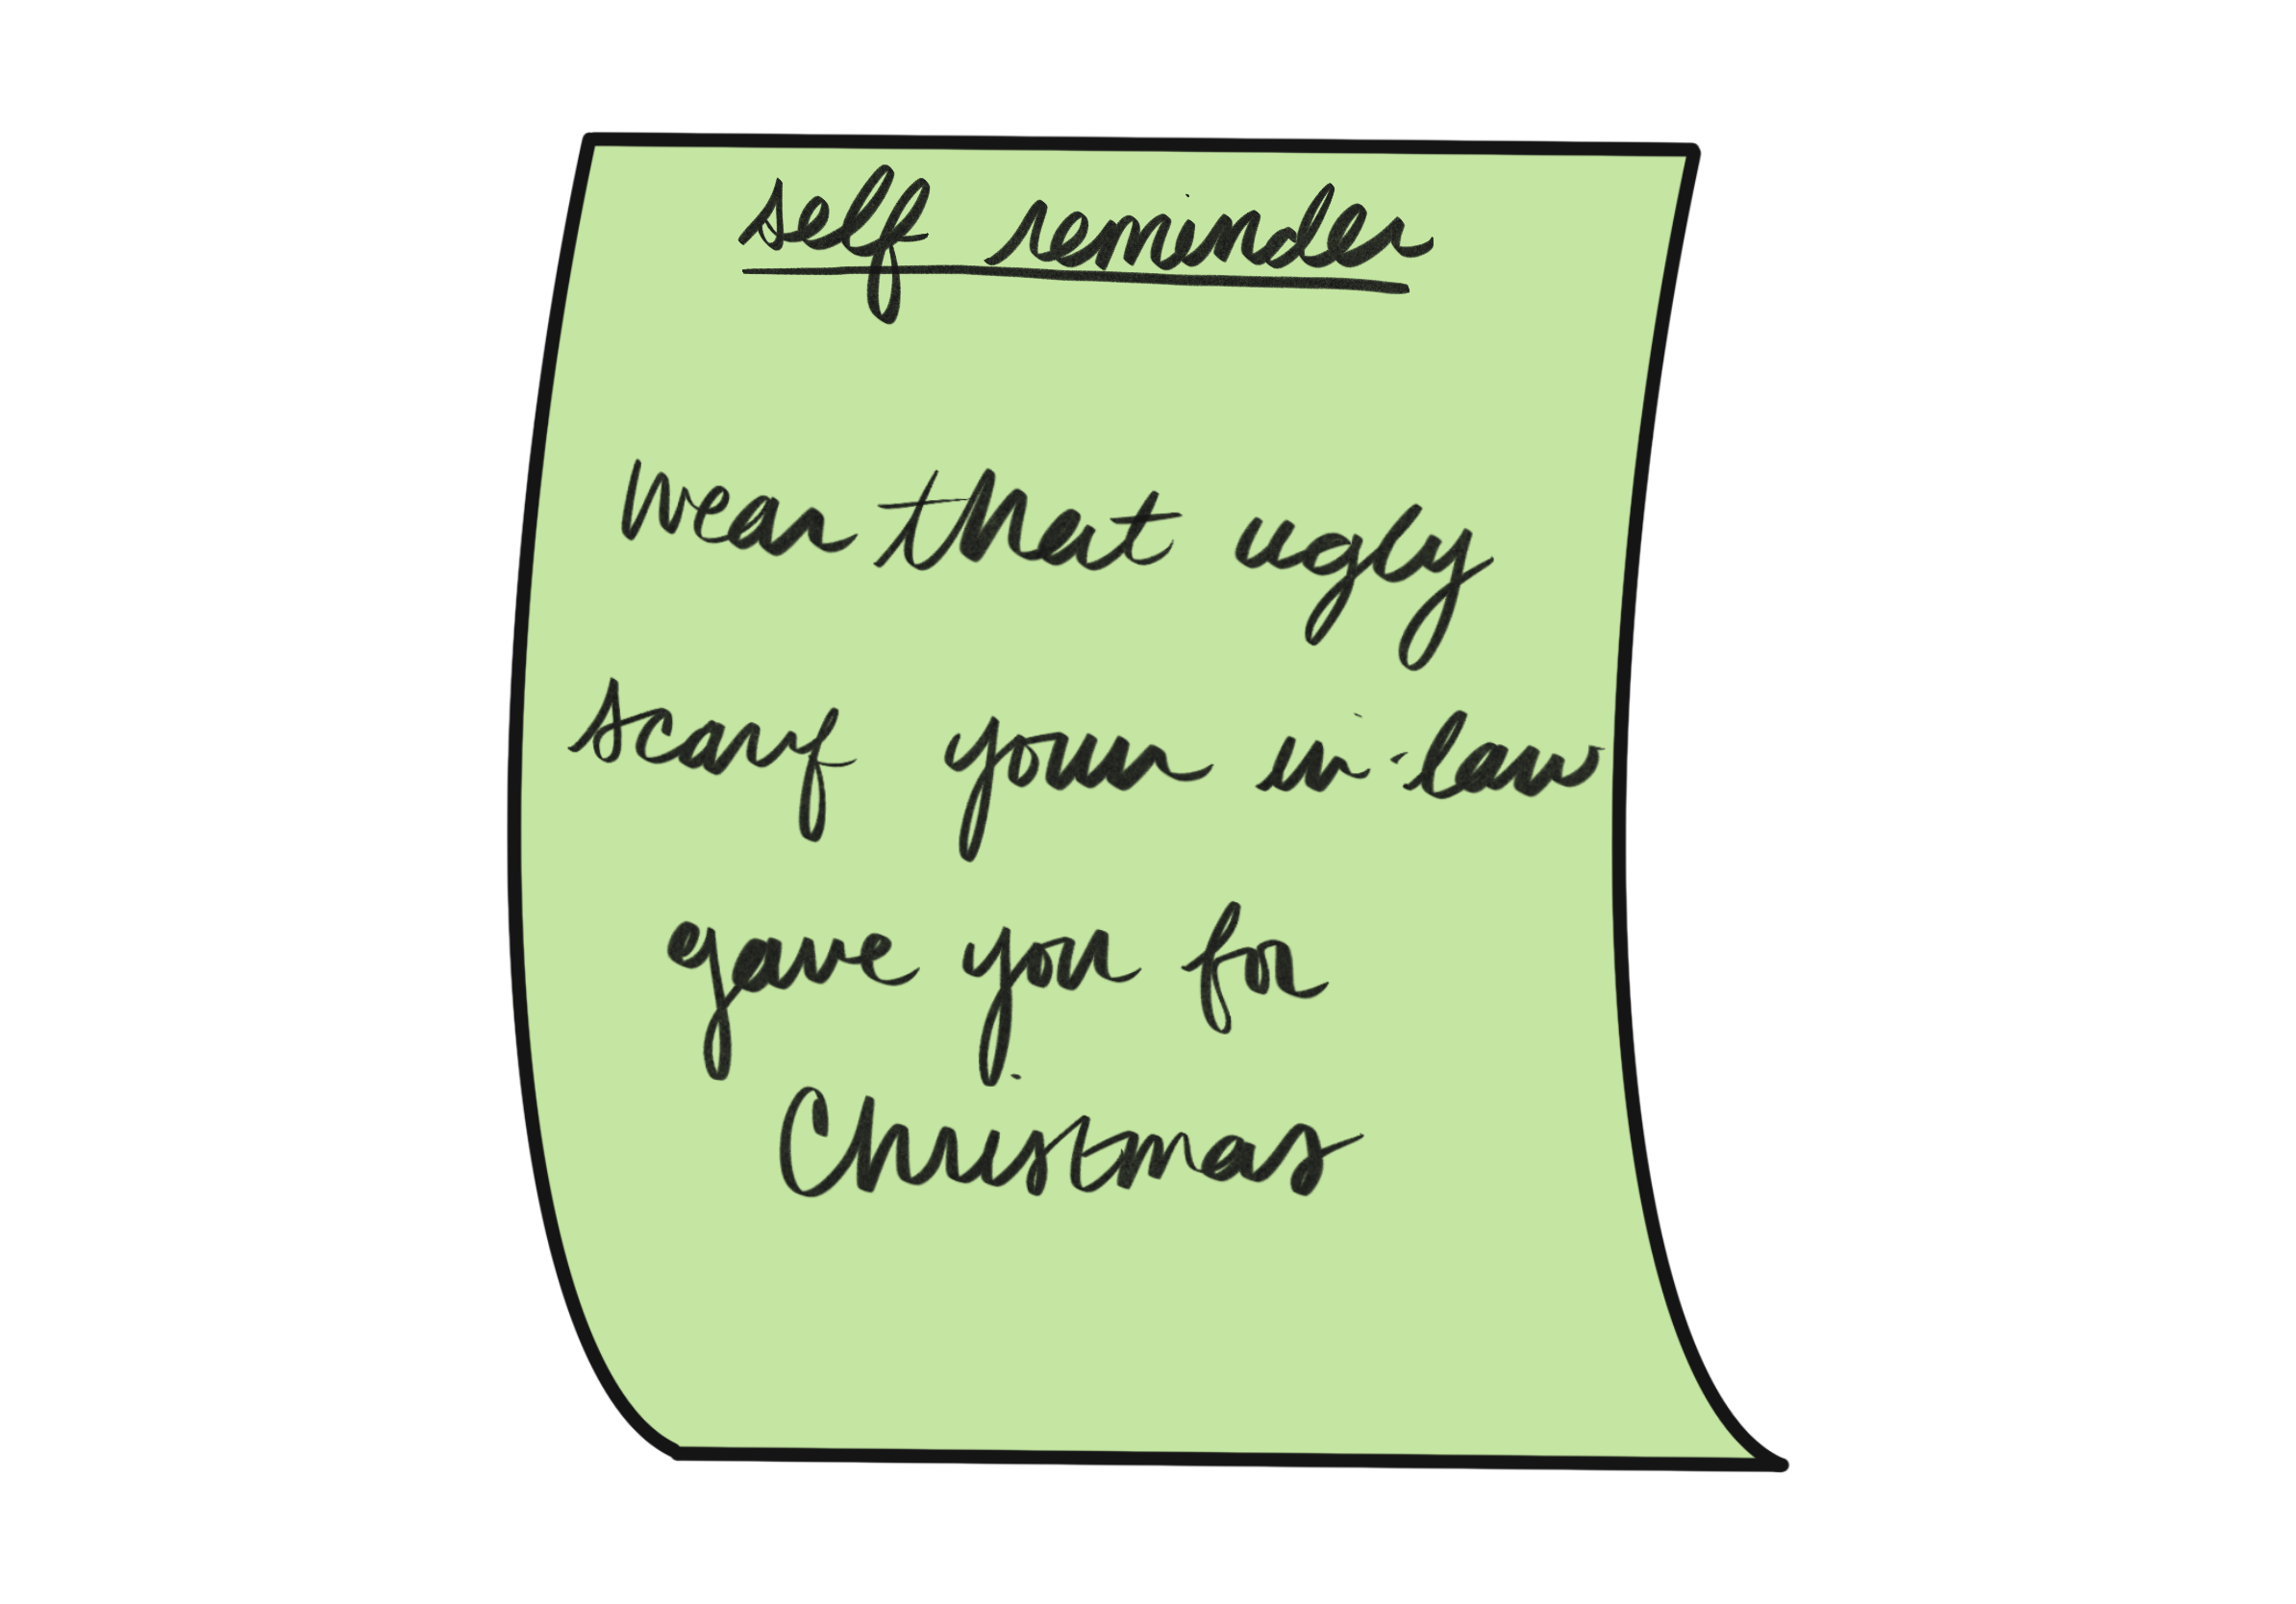 self reminder
wear that ugly
scarf your in-law
gave you for
Christmas